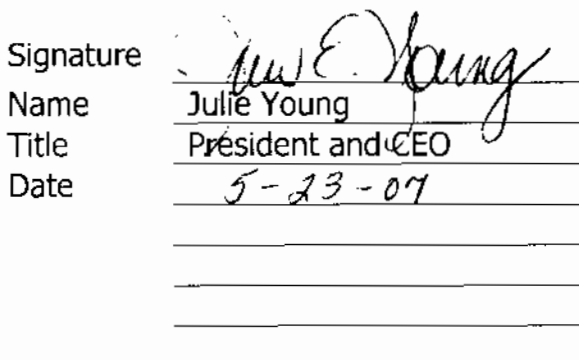 Signature Julie E. Young
Name Julie Young
Title President and CEO
Date 5-23-07